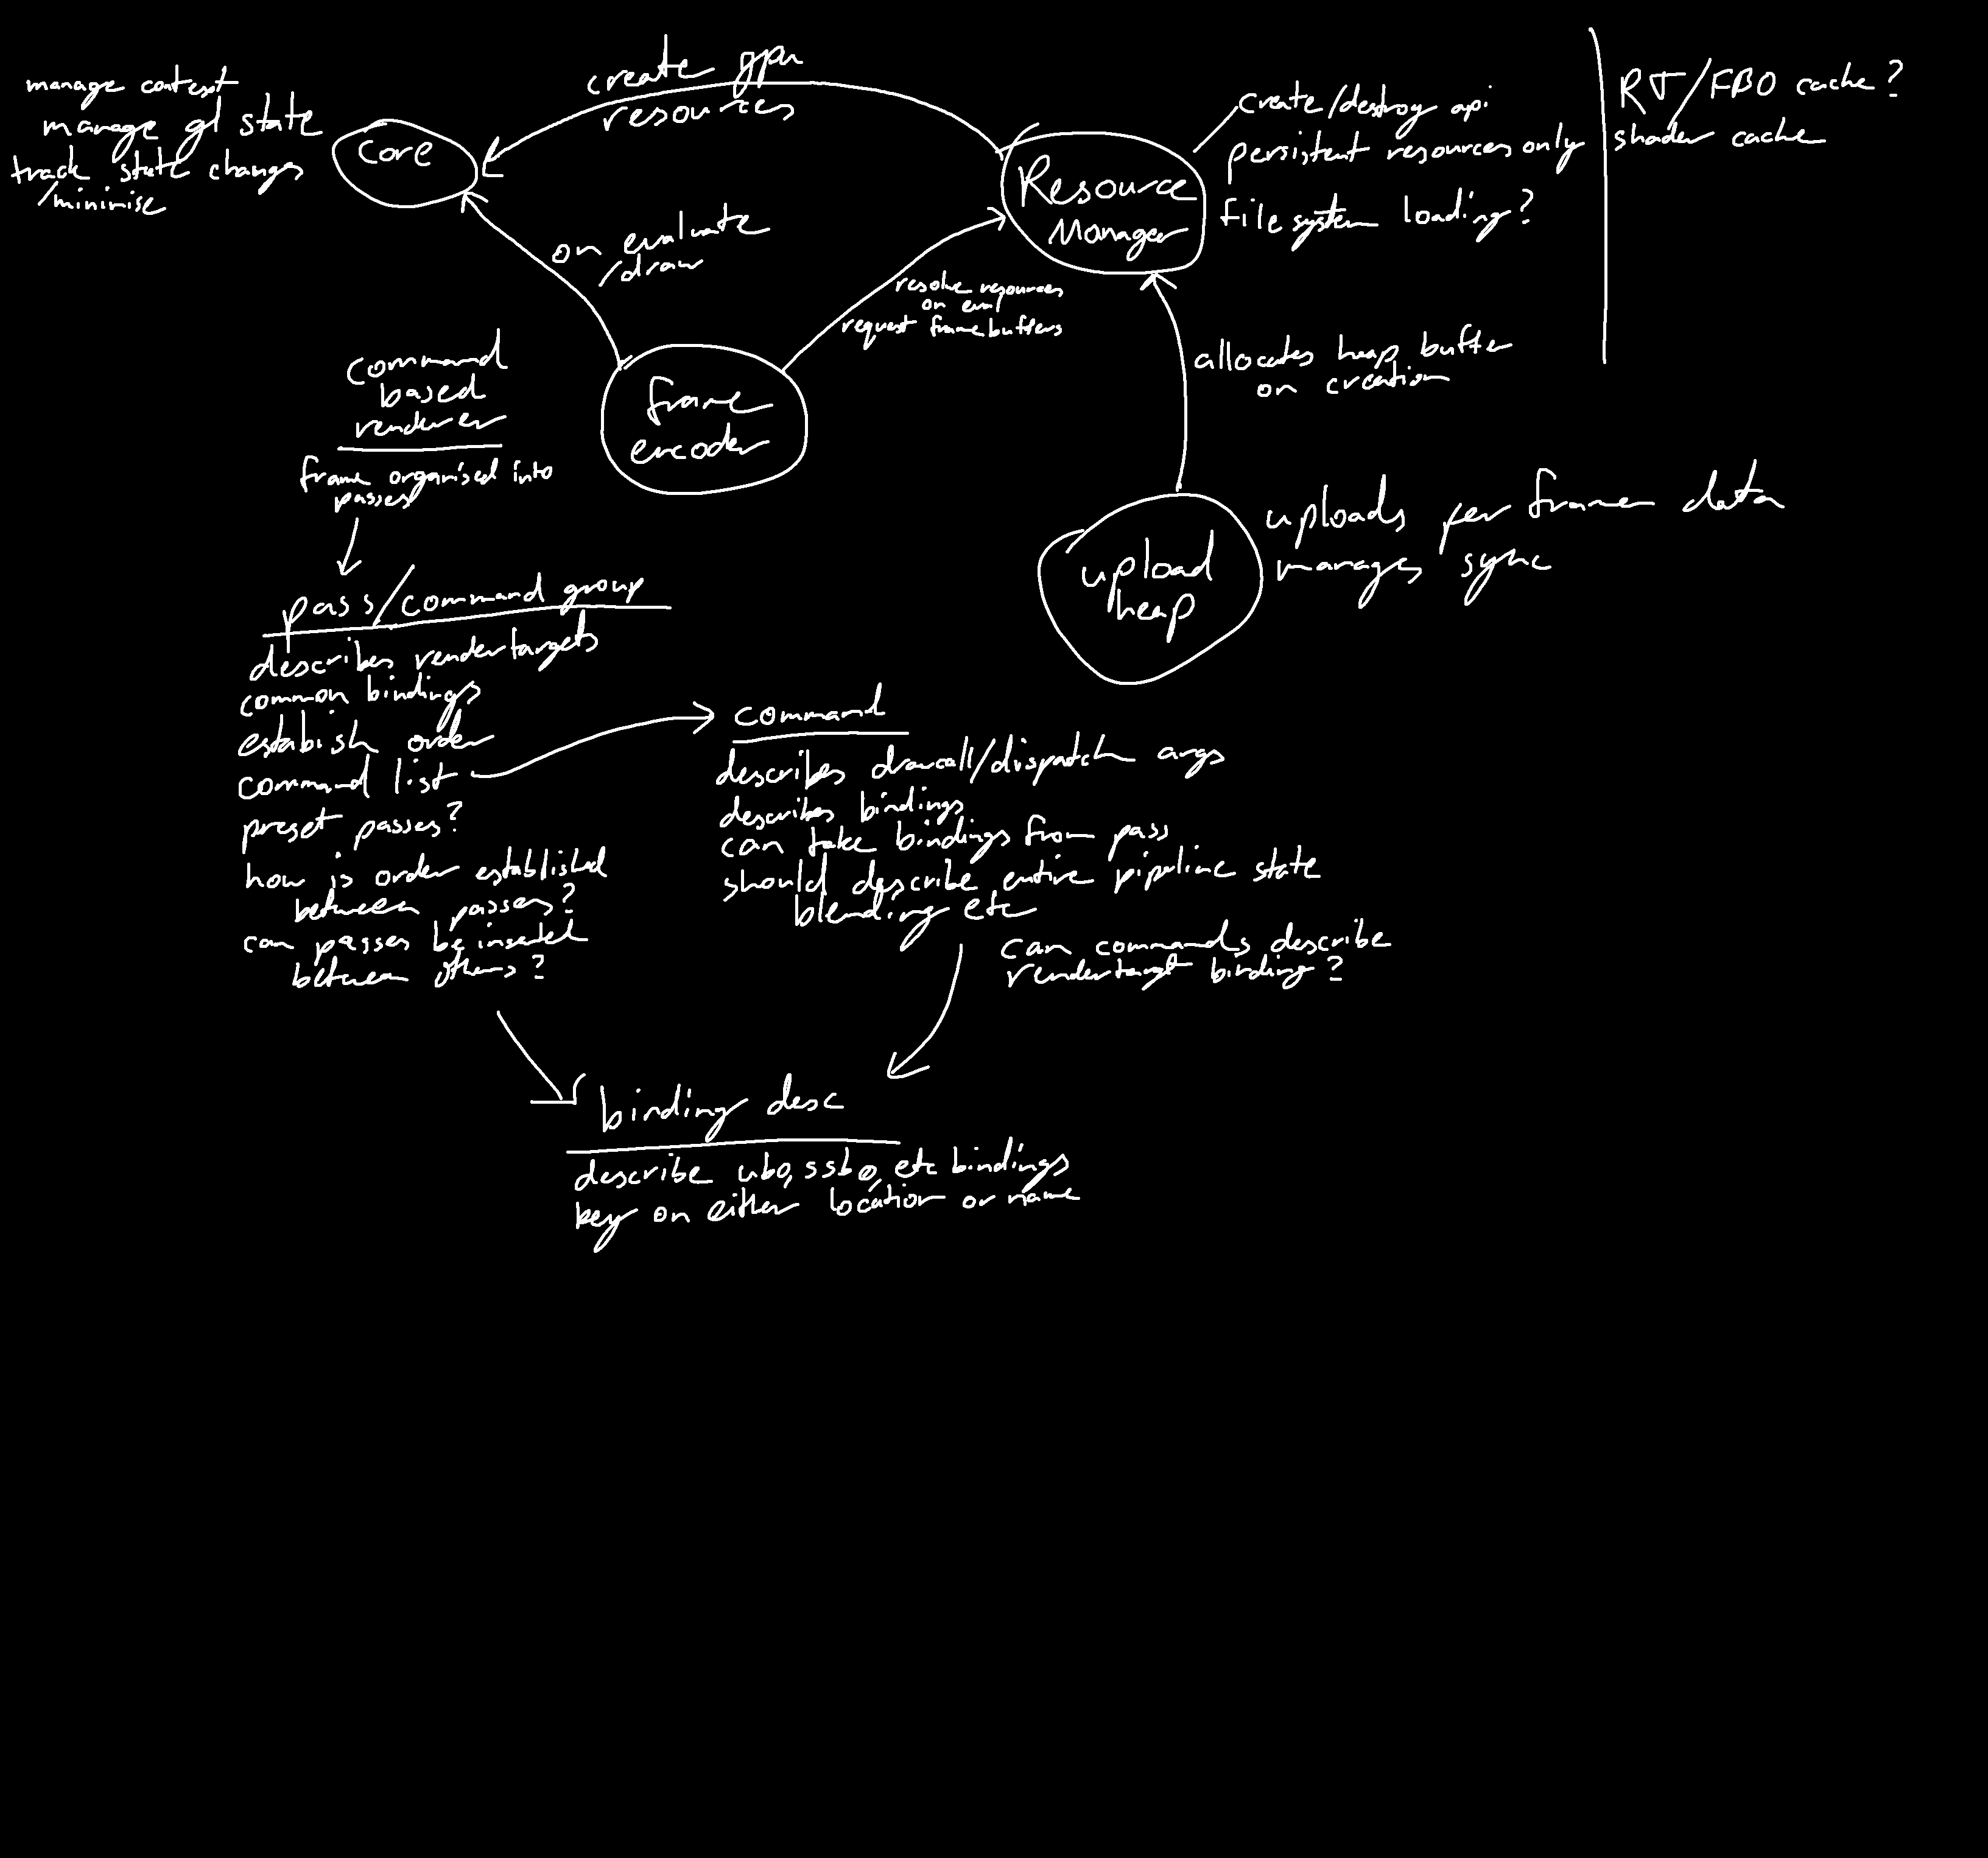 manage context
manage gl state
track state changes
/minimise
core
create gpu
resources
Resource
Manager
create/destroy api
persistent resources only
file system loading?
RT/FBO cache?
shader cache
on evaluate
/draw
resolve resources
on eval
request framebuffers
frame
encoder
allocates heap buffer
on creation
upload
heap
uploads per frame data
manages sync
command
based
renderer
frame organised into
passes
pass/command group
describes rendertargets
common bindings
estabish order
command list
preset passes?
how is order established
between passes?
can passes be inserted
between others?
command
describes drawcall/dispatch args
describes bindings
can take bindings from pass
should describe entire pipeline state
blending etc
can commands describe
rendertarget binding?
binding desc
describe ubo, ssbo, etc bindings
key on either location or name